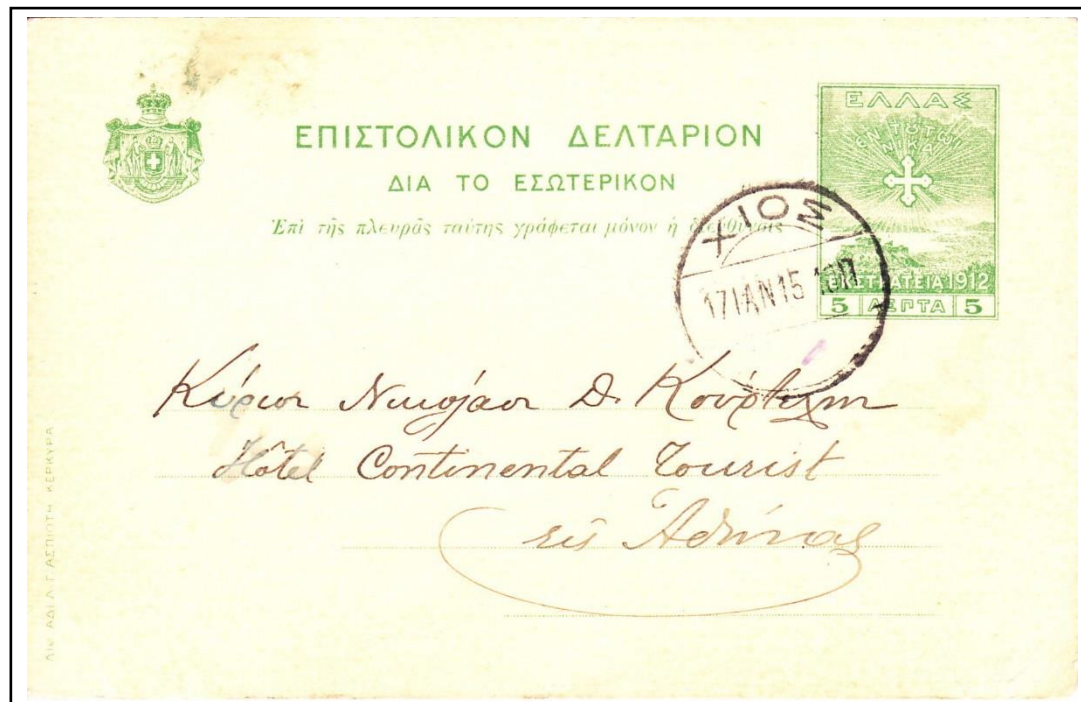 ΕΠΙΣΤΟΛΙΚΟΝ ΔΕΛΤΑΡΙΟΝ
ΔΙΑ ΤΟ ΕΣΩΤΕΡΙΚΟΝ
Ἐπὶ τῆς πλευρᾶς ταύτης γράφεται μόνον ἡ διεύθυνσις
ΕΛΛΑΣ
ΕΝ ΤΟΥΤΩΙ
ΝΙΚΑ
ΕΚΣΤΡΑΤΕΙΑ 1912
5 ΛΕΠΤΑ 5
ΧΙΟΣ
17 ΙΑΝ 15
Κύριον Νικόλαον Δ.
Hôtel Continental Tourist
εις Αθήνας
ΑΣΠΙΩΤΗ ΚΕΡΚΥΡΑ